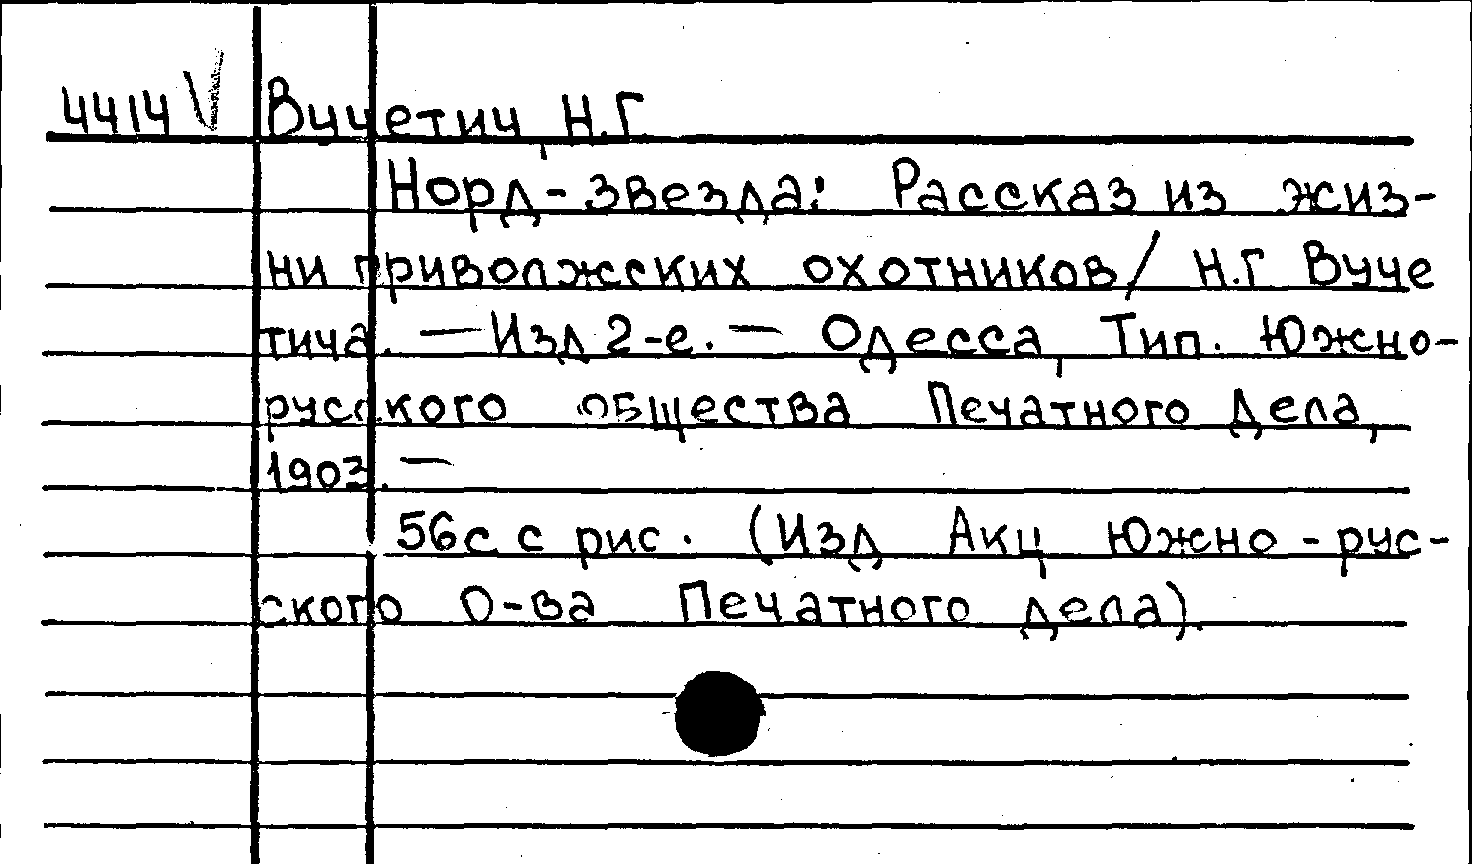 4414 V Вучетич, Н.Г.
Норд-звезда: Рассказ из жиз-
ни приволжских охотников/ Н.Г Вуче
тича. — Изд 2-е. — Одесса, Тип. Южно-
русского общества Печатного Дела,
1903. —
56с с рис. (Изд Акц Южно-рус-
ского О-ва Печатного дела).